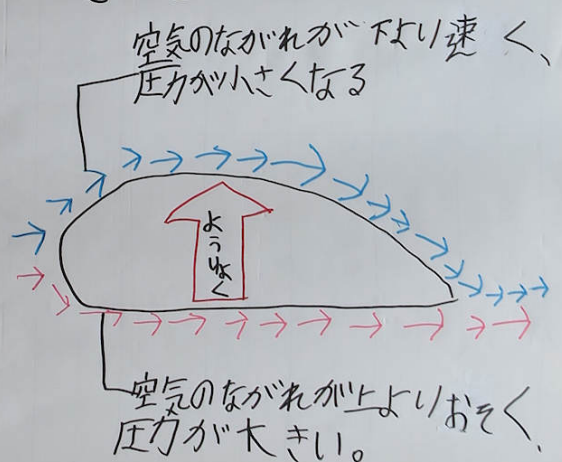 空気のながれが下より速く、
圧力が小さくなる
ようりょく
空気のながれが上よりおそく、
圧力が大きい。